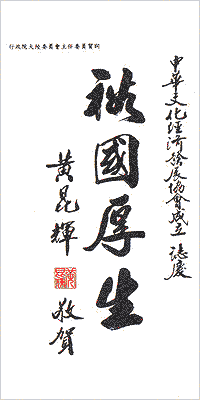 行政院大陸委員會主任委員賀詞
中華文化經濟發展協會成立誌慶
裕國厚生
黃昆輝
敬賀